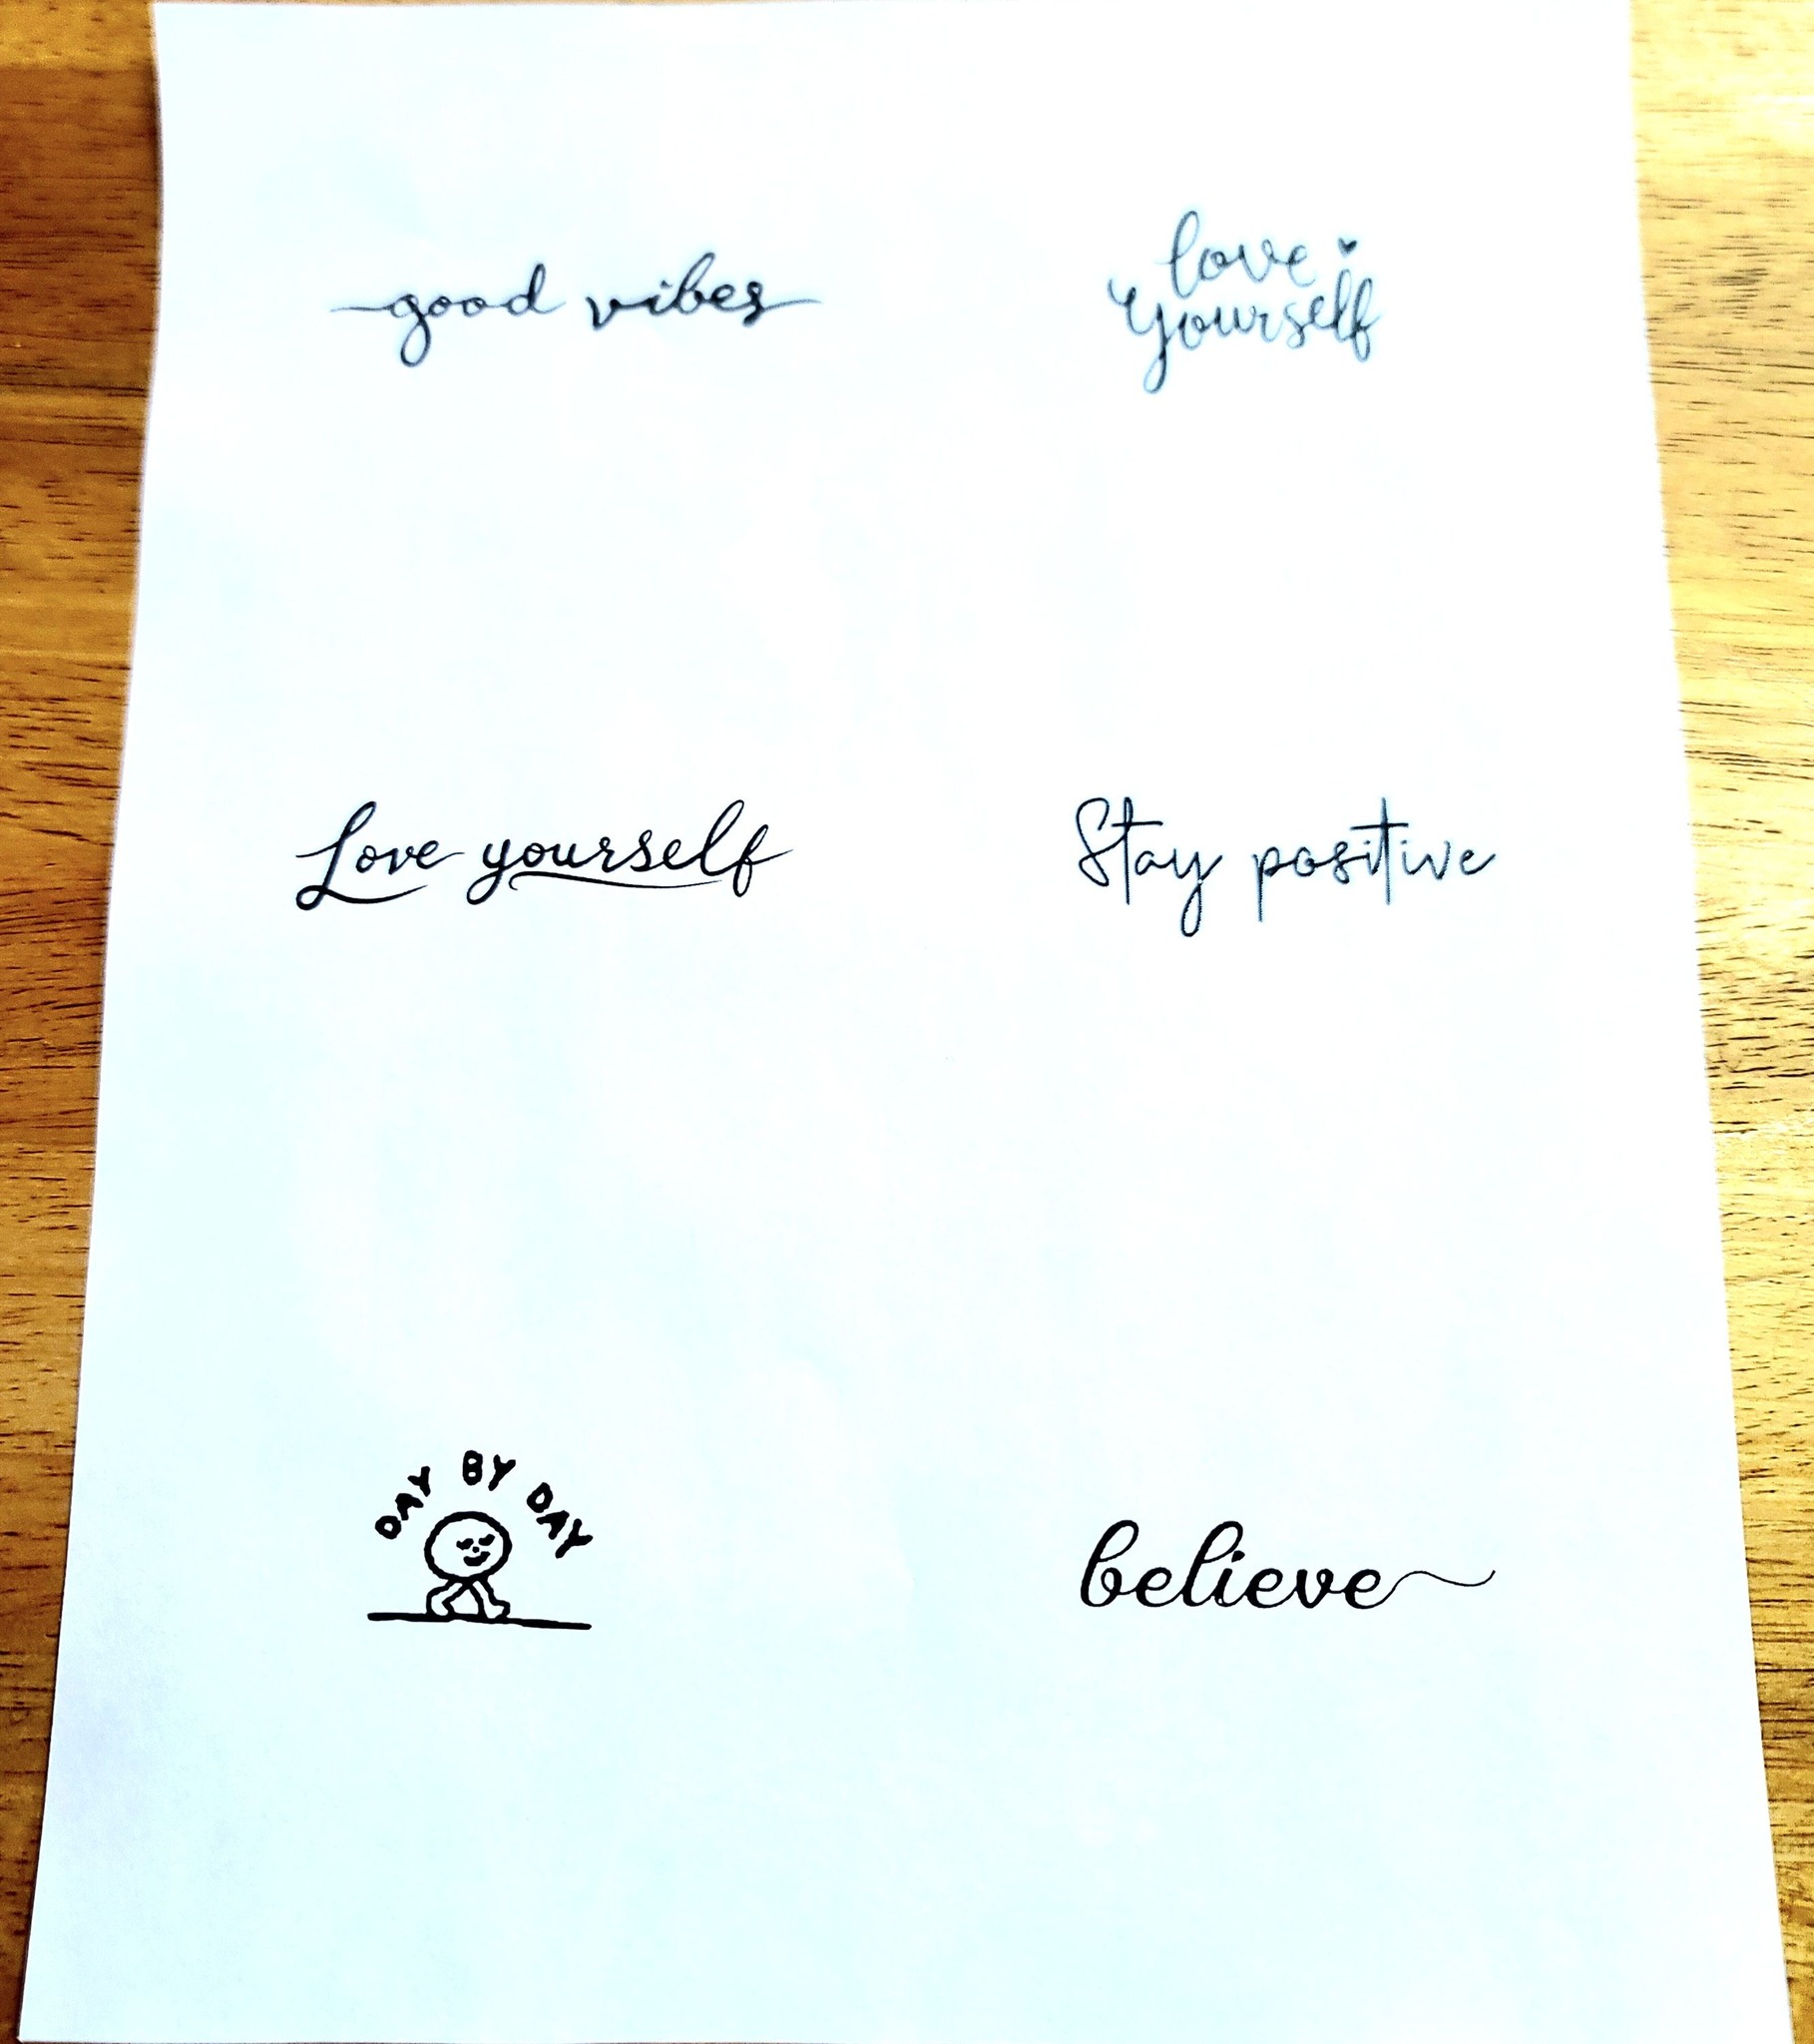 good vibes
love
yourself
Love yourself
Stay positive
DAY BY DAY
believe